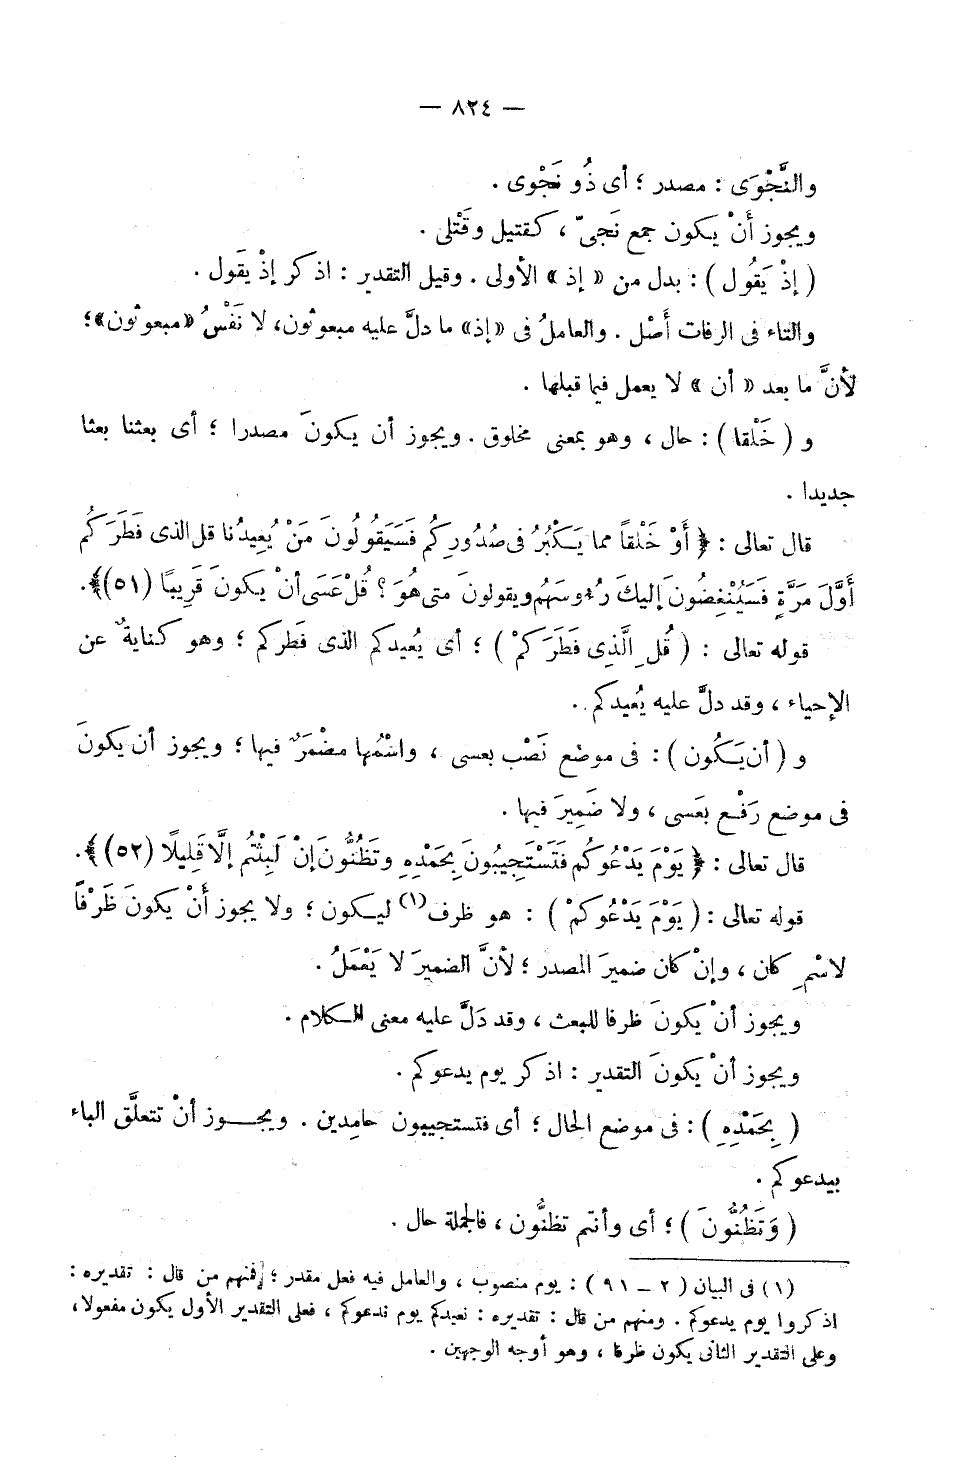 — ٨٢٤ —
والنَّجْوَى : مصدر ؛ أى ذُو نَجْوى .
ويجوز أنْ يكون جمع نَجىّ ، كقتيل وقَتْلى .
( إذْ يَقُول ) : بدل من « إذ » الأولى . وقيل التقدير : اذكر إذْ يَقول .
والتاء فى الرفات أَصْل . والعاملُ فى «إذ» ما دلَّ عليه مبعوثون، لا نَفْسُ «مبعوثون»؛
لأنَّ ما بعد « أن » لا يعمل فيما قبلها .
و ( خَلْقا ) : حال ، وهو بمعنى مخلوق . ويجوز أن يكونَ مصدرا ؛ أى بعثنا بعثا
جديدا .
قال تعالى : ﴿ أَوْ خَلْقاً مما يَكْبُرُ فى صُدُورِكُم فَسَيَقُولُونَ مَنْ يُعِيدُنا قل الذى فَطَرَكُم
أَوَّلَ مَرَّةٍ فَسَيُنْغِضُونَ إليكَ رُءوسَهُم ويقولونَ متى هُوَ ؟ قُلْ عَسَى أنْ يكونَ قَرِيبًا (٥١)﴾.
قوله تعالى : ( قُلِ الَّذِى فَطَرَكمْ ) ؛ أى يُعيدكم الذى فَطركم ؛ وهو كنايةٌ عن
الإحياء ، وقد دلَّ عليه يُعيدكم .
و ( أن يَكُون ) : فى موضع نَصْب بعسى ، واسْمُها مضْمَرٌ فيها ؛ ويجوز أن يكونَ
فى موضع رَفْع بعَسى ، ولا ضَمِيرَ فيها .
قال تعالى : ﴿ يَوْمَ يَدْعُوكم فَتَسْتَجِيبُونَ بِحَمْدِهِ وتَظُنُّونَ إنْ لَبِثْتُم إلَّا قَلِيلًا (٥٢)﴾.
قوله تعالى : ( يَوْمَ يَدْعُوكمْ ) : هو ظرف(١) ليكون ؛ ولا يجوز أنْ يكونَ ظَرْفاً
لاسْمِ كان ، وإنْ كان ضميرَ المصدر ؛ لأنَّ الضميرَ لا يَعْمَلُ .
ويجوز أنْ يكونَ ظرفا للبعث ، وقد دَلَّ عليه معنى الكلام .
ويجوز أنْ يكونَ التقدير : اذكر يوم يدعوكم .
( بِحَمْدِهِ ) : فى موضع الحال ؛ أى فتستجيبون حامِدين . ويجوز أنْ تتعلَّق الباء
بيدعوكم .
( وَتَظُنُّونَ ) ؛ أى وأنتم تظنُّون ، فالجملة حال .
(١) فى البيان ( ٢ - ٩١ ) : يوم منصوب ، والعامل فيه فعل مقدر ؛ فمنهم من قال : تقديره :
اذكروا يوم يدعوكم . ومنهم من قال : تقديره : نعيدكم يوم ندعوكم ، فعلى التقدير الأول يكون مفعولا،
وعلى التقدير الثانى يكون ظرفا ، وهو أوجه الوجهين .